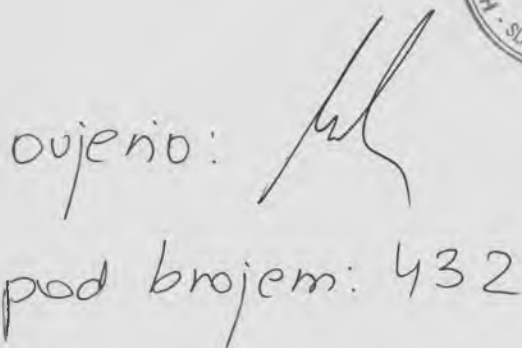 ovjerio:
pod brojem: 432